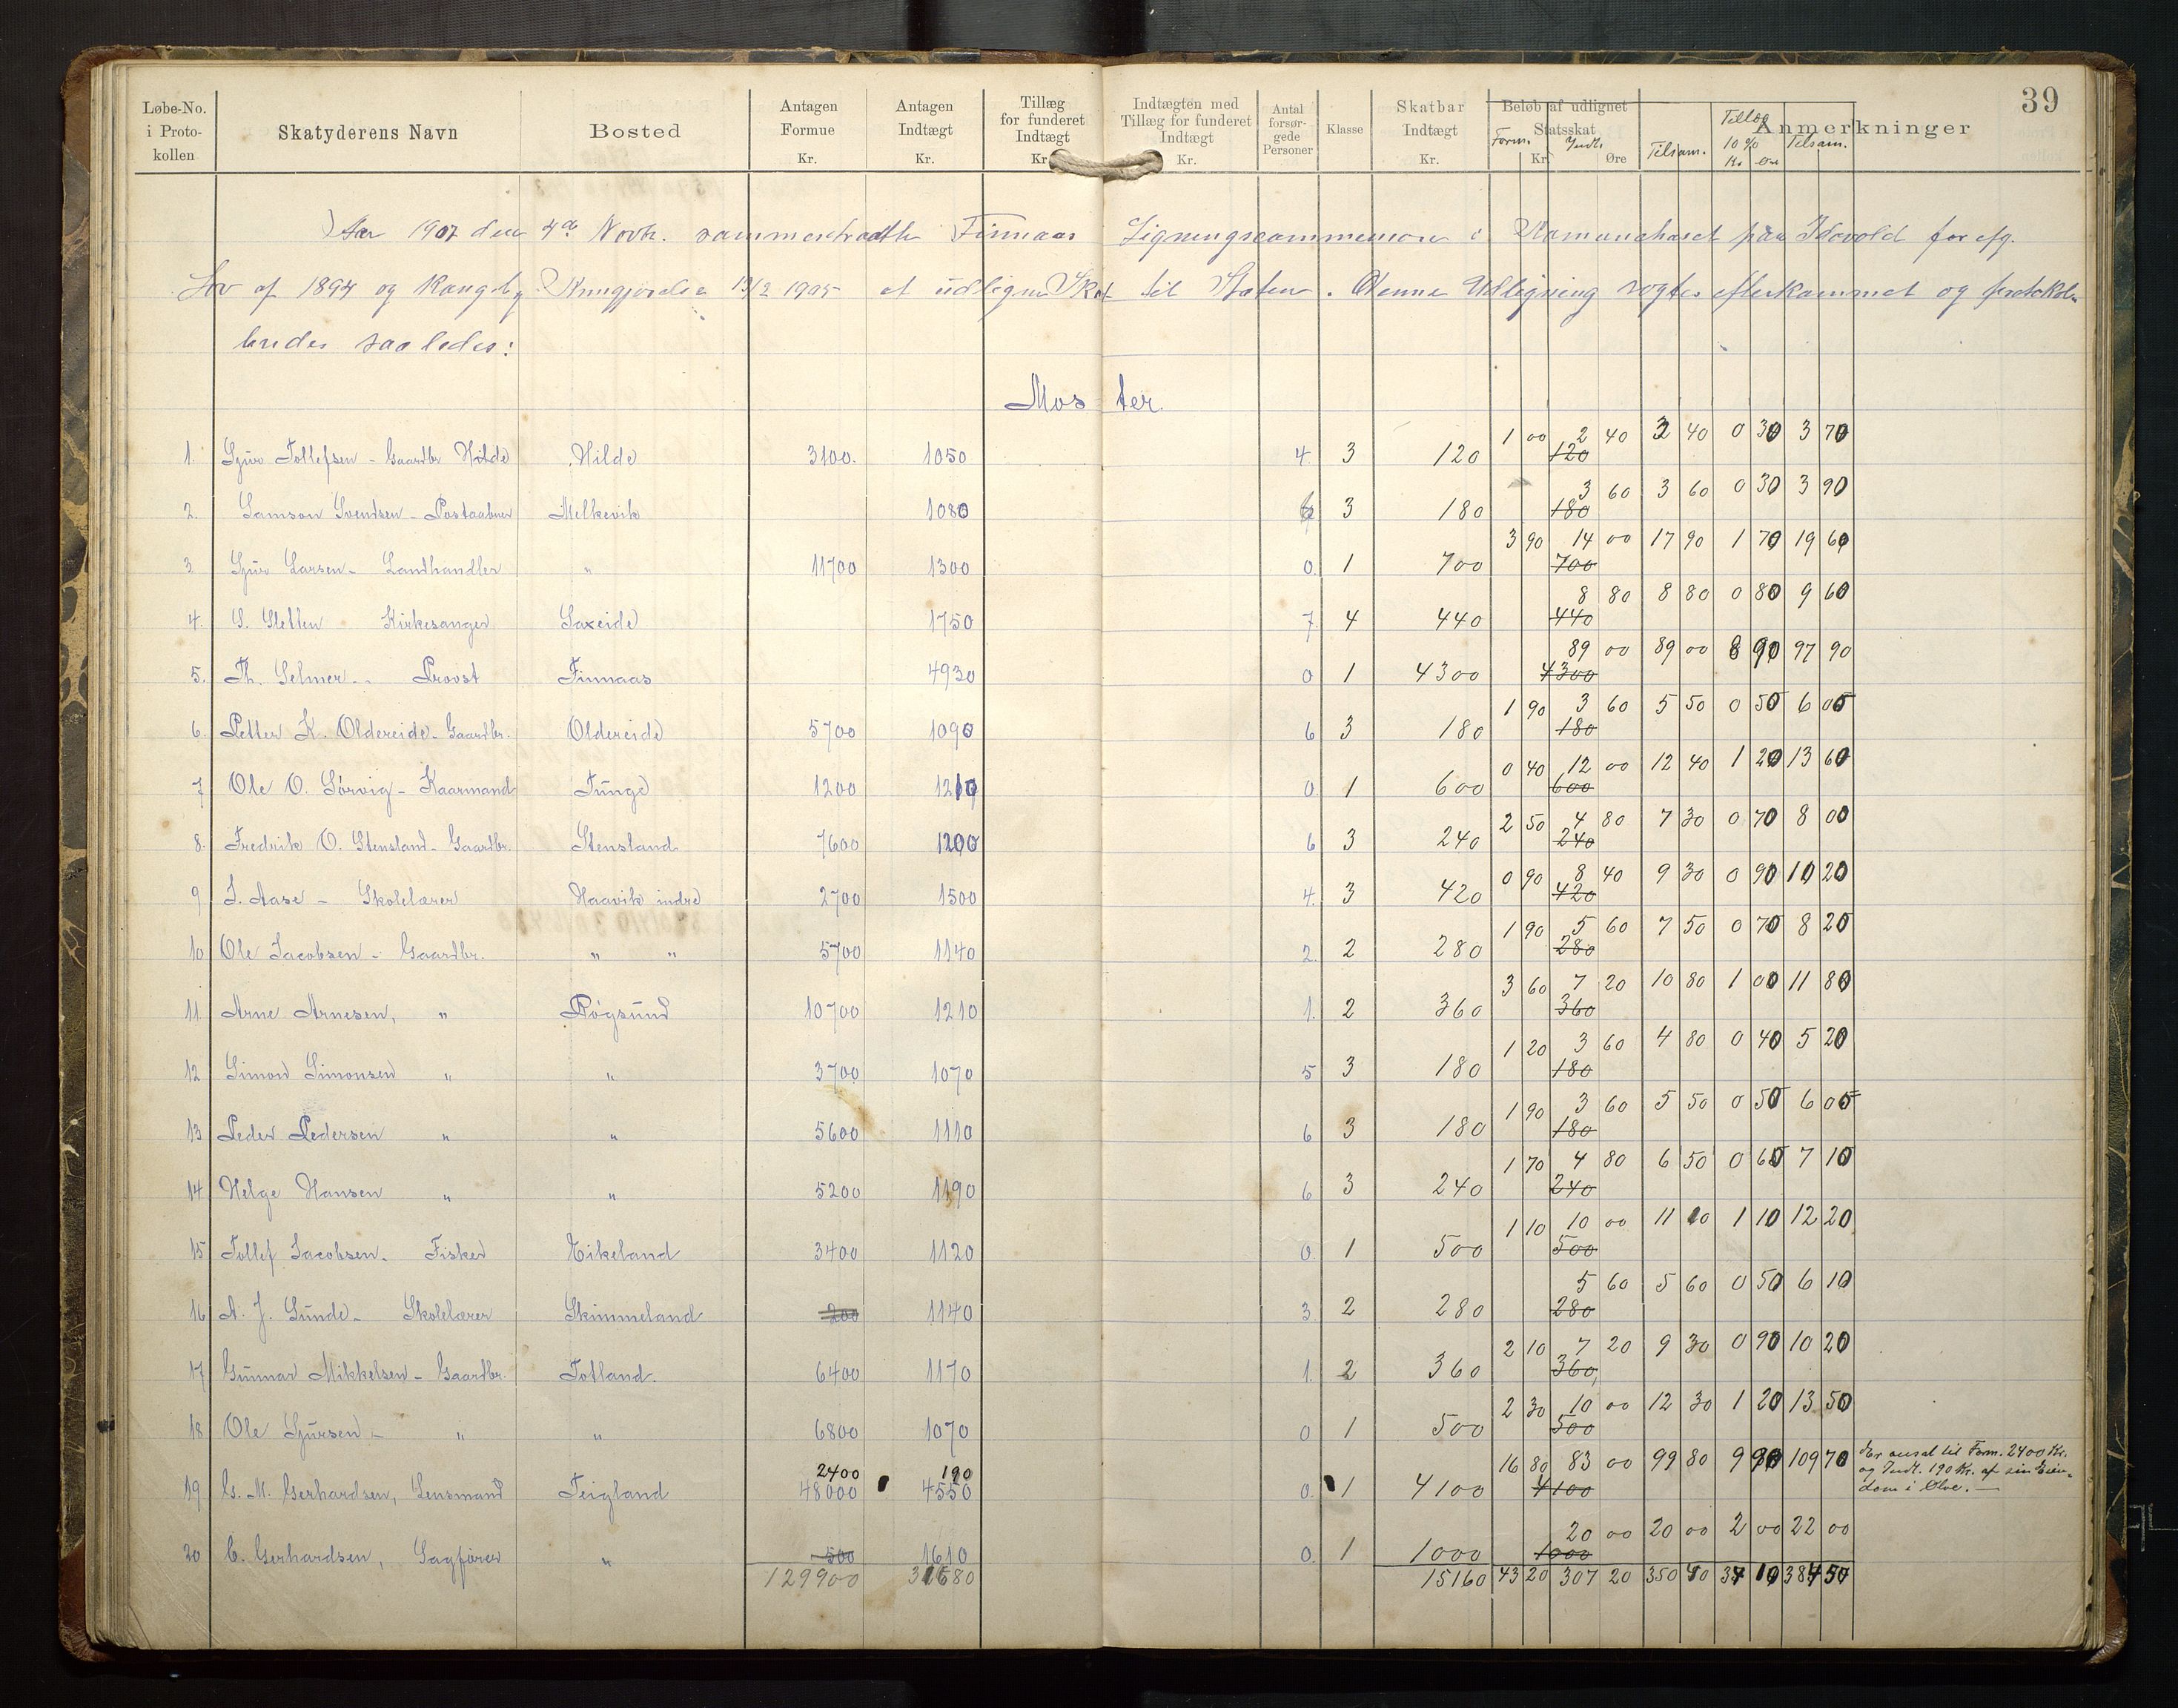 39
Løbe-No. i Protokollen | Skatyderens Navn | Bosted | Antagen Formue Kr. | Antagen Indtægt Kr. | Tillæg for funderet Indtægt Kr. | Indtægten med Tillæg for funderet Indtægt Kr. | Antal forsørgede Personer | Klasse | Skatbar Indtægt Kr. | Beløb af udlignet Statsskat Form. Kr. Indt. Øre | Tilsam. | Tillæg 10 % Kr Øre | Tilsam. | Anmerkninger
Aar 1907 den 4de Novbr. sammentraadte Finnaas Ligningscommission i paa for efg.
Lov af 1894 og Kungjørelse 19/2 1905 at udligne Skat til Staten. Denne Udligning efterkommet og
saaledes:
Moster
1. Sjur Tollefsen - Gaardbr Hilde | Hilde | 3100. | 1050 | 4. | 3 | 120 | 1 00 | 2 40 | 120 | 3 40 | 0 30 | 3 70
2. Samson Svendsen - Postaabner | Melkevik | 1080 | 6 | 3 | 180 | 3 60 | 180 | 3 60 | 0 30 | 3 90
3 Sjur Larsen - Landhandler | " | 11700 | 1300 | 0. | 1 | 700 | 3 90 | 14 00 | 700 | 17 90 | 1 70 | 19 60
4. S. Sletten Kirkesanger | Saxeid | 1750 | 7. | 4 | 440 | 8 80 | 440 | 8 80 | 0 80 | 9 60
5. Th. Selmer - Provst | Finnaas | 4930 | 0 | 1 | 4300 | 89 00 | 4300 | 89 00 | 8 90 | 97 90
6. Petter K. Oldereide - Gaardbr. | Oldereide | 5700 | 1090 | 6 | 3 | 180 | 1 90 | 3 60 | 180 | 5 50 | 0 50 | 6 00
7 Ole O. Sørvig - Kaarmand | Tunge | 1200 | 1210 | 0 | 1 | 600 | 0 40 | 12 00 | 600 | 12 40 | 1 20 | 13 60
8. Fredrik O. Stensland - Gaardbr. | Stensland | 7600 | 1200 | 6 | 3 | 240 | 2 50 | 4 80 | 240 | 7 30 | 0 70 | 8 00
9 J. Aase - Skolelærer | Haavik indre | 2700 | 1500 | 4. | 3 | 420 | 0 90 | 8 40 | 420 | 9 30 | 0 90 | 10 20
10 Ole Jacobsen - Gaardbr. | " " | 5700 | 1140 | 2. | 2 | 280 | 1 90 | 5 60 | 280 | 7 50 | 0 70 | 8 20
11 Arne Arnesen, " | Røgsund | 10700 | 1210 | 1. | 2 | 360 | 3 60 | 7 20 | 360 | 10 80 | 1 00 | 11 80
12 Simon Simonsen " | " | 3700 | 1070 | 5 | 3 | 180 | 1 20 | 3 60 | 180 | 4 80 | 0 40 | 5 20
13 Peder Pedersen " | " | 5600 | 1110 | 6 | 3 | 180 | 1 90 | 3 60 | 180 | 5 50 | 0 50 | 6 00
14 Helge Hansen " | " | 5200 | 1190 | 6 | 3 | 240 | 1 70 | 4 80 | 240 | 6 50 | 0 60 | 7 10
15 Tollef Jacobsen. Fisker | Eikeland | 3400 | 1120 | 0. | 1 | 500 | 1 10 | 10 00 | 500 | 11 10 | 1 10 | 12 20
16 A. J. Sunde - Skolelærer | Skimmeland | 200 | 1140 | 3 | 2 | 280 | 5 60 | 280 | 5 60 | 0 50 | 6 10
17 Gunnar Mikkelsen - Gaardbr. | Totland. | 6400 | 1170 | 1. | 2 | 360 | 2 10 | 7 20 | 360 | 9 30 | 0 90 | 10 20
18 Ole Sjursen - " | " | 6800 | 1070 | 0 | 1 | 500 | 2 30 | 10 00 | 500 | 12 30 | 1 20 | 13 50
2400 | 190
19 G. M. Gerhardsen, Lensmand | Teigland | 48000 | 4550 | 0. | 1 | 4100 | 16 80 | 83 00 | 4100 | 99 80 | 9 90 | 109 70 | Er ansat til Form. 2400 Kr. og Indt. 190 Kr. af sin Eiendom i Ølve. —
20 C. Gerhardsen, Sagfører | " | 500 | 1610 | 0. | 1 | 1000 | 20 00 | 1000 | 20 00 | 2 00 | 22 00
129900 | 15160 | 43 20 | 307 20 | 350 40